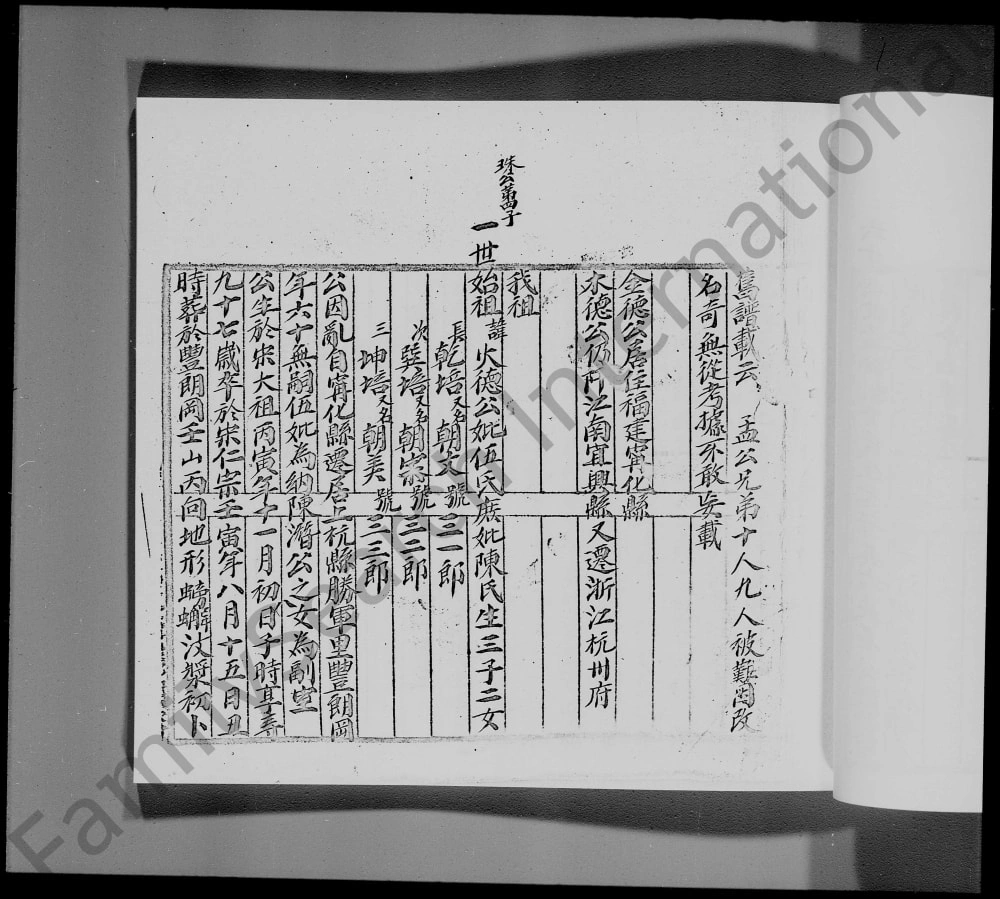 舊譜載云 孟公兄弟十人九人被難因改
名奇無從考據不敢妄載
金德公居住福建甯化縣
木德公仍而江南宜興縣又遷浙江杭州府
我祖
珠公萬子
一世始祖諱火德公妣伍氏庶妣陳氏生三子二女
長乾培又名朝文號三一郎
次巽培又名朝宗號三二郎
三坤培又名朝美號三三郎
公因亂自甯化縣遷居上杭縣勝軍里豐朗岡
年六十無嗣伍妣為納陳潛公之女為副室
公生於宋大祖丙寅年十一月初日子時享壽
九十七歲卒於宋仁宗壬寅年八月十五日丑
時葬於豐朗岡壬山丙向地形螃蠏汶漿初卜
FamilySearch International